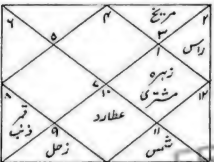 ۶ ۴ مریخ ۲
۵ ۳ راس
۱ زہرہ
۷ ۱۰ مشتری ۱۲
۸ عطارد
قمر ذنب ۹ زحل ۱۱ شمس